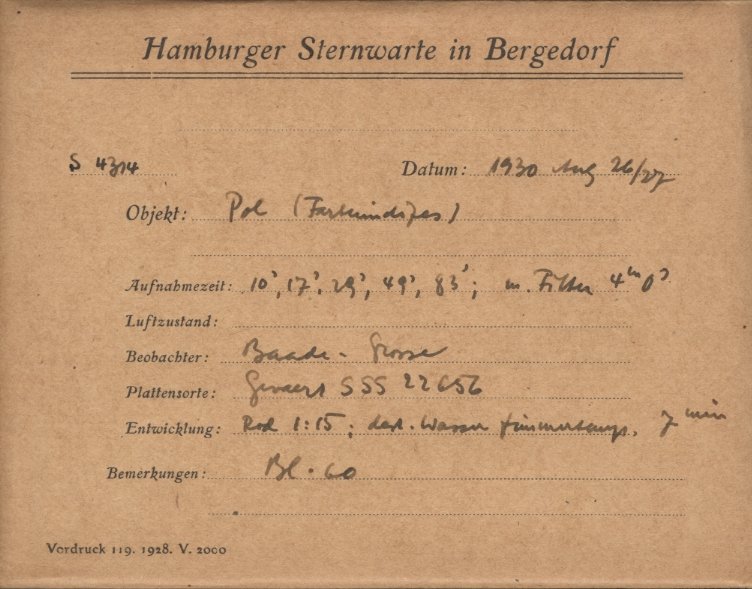 Hamburger Sternwarte in Bergedorf
S 4314
Datum: 1930 Aug 26/27
Objekt: Pol (Farbindizes)
Aufnahmezeit: 10', 17', 29', 49', 83'; m. Filter 4ᵐ 0ˢ
Luftzustand:
Beobachter: Baade - Grosse
Plattensorte: Gevaert SSS 22656
Entwicklung: Rod 1:15; dest. Wasser Zimmertemp. 7 min
Bemerkungen: Bl. 60
Vordruck 119. 1928. V. 2000